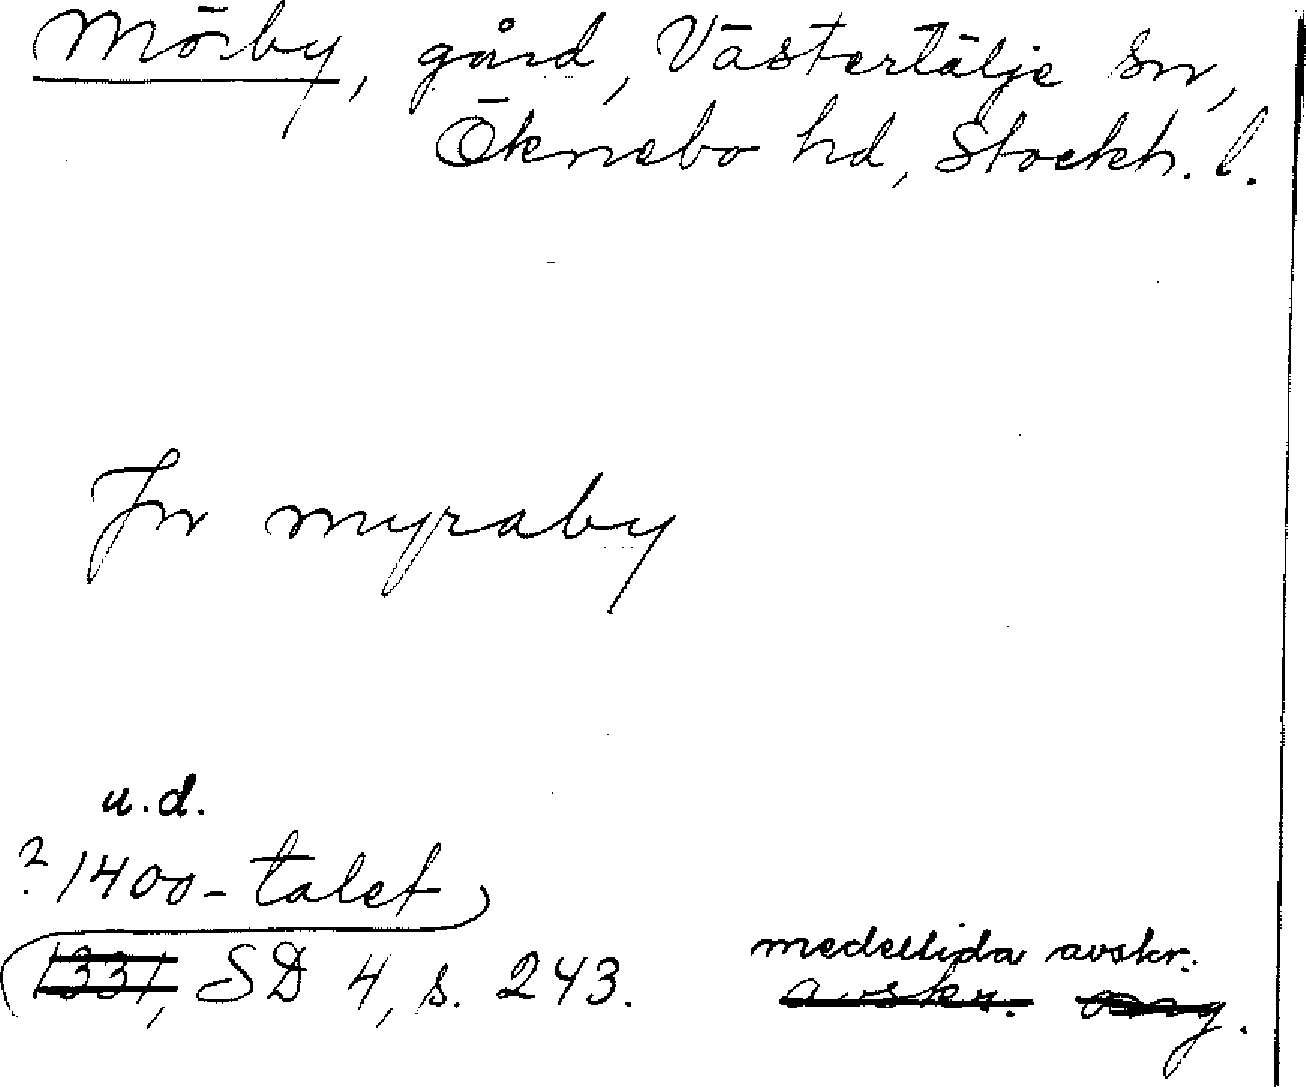 Mörby, gård, Västertälje sn,
Öknebo hd, Stockh. l.
Jn myraby
u.d.
? 1400-talet
1331, SD 4, s. 243.
medeltida avskr.
avskr.